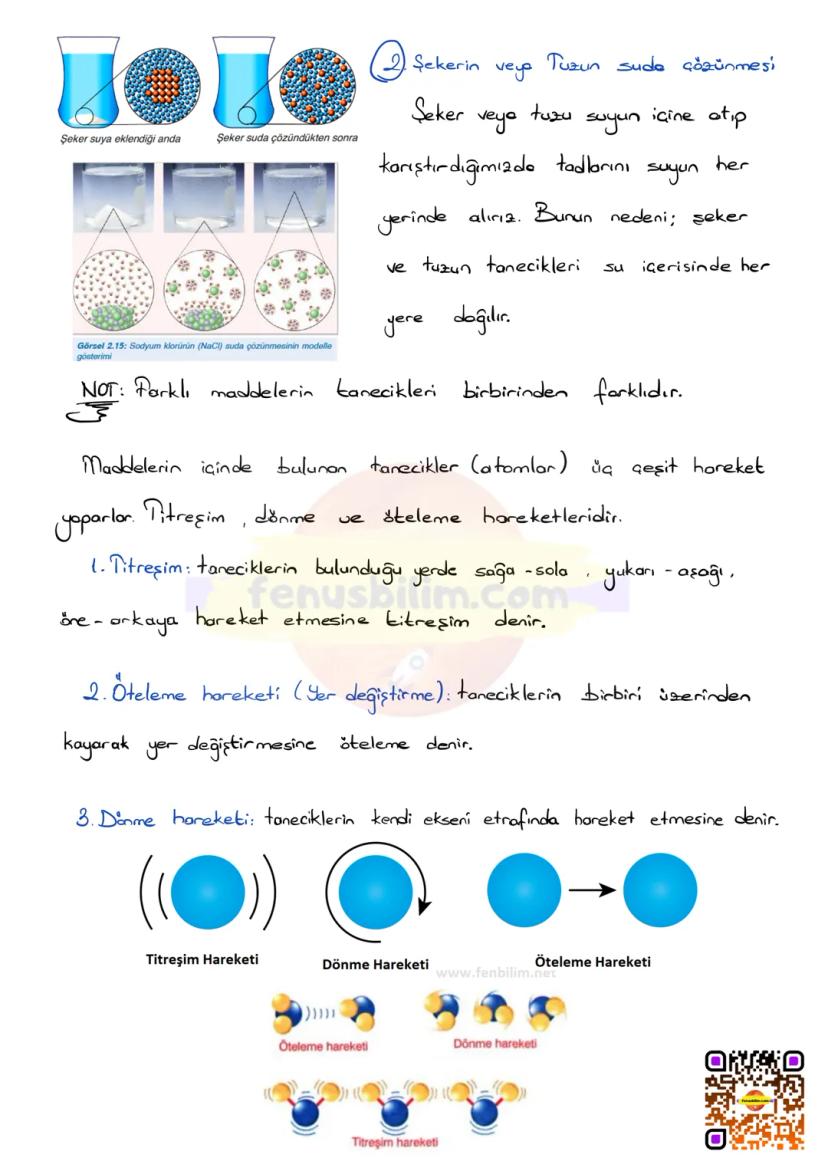 Şeker suya eklendiği anda
Şeker suda çözündükten sonra
Görsel 2.15: Sodyum klorürün (NaCl) suda çözünmesinin modelle
gösterimi
2. Şekerin veya Tuzun suda çözünmesi
Şeker veya tuzu suyun içine atıp
karıştırdığımızda tadlarını suyun her
yerinde alırız. Bunun nedeni; şeker
ve tuzun tanecikleri su içerisinde her
yere dağılır.
NOT: Farklı maddelerin tanecikleri birbirinden farklıdır.
Maddelerin içinde bulunan tanecikler (atomlar) üç çeşit hareket
yaparlar. Titreşim, dönme ve öteleme hareketleridir.
1. Titreşim: taneciklerin bulunduğu yerde sağa-sola, yukarı-aşağı,
fenusbilim.com
öne-arkaya hareket etmesine titreşim denir.
2. Öteleme hareketi (Yer değiştirme): taneciklerin birbiri üzerinden
kayarak yer değiştirmesine öteleme denir.
3. Dönme hareketi: taneciklerin kendi ekseni etrafında hareket etmesine denir.
Titreşim Hareketi
Dönme Hareketi
Öteleme Hareketi
www.fenbilim.net
Öteleme hareketi
Dönme hareketi
Titreşim hareketi
fenusbilim.com